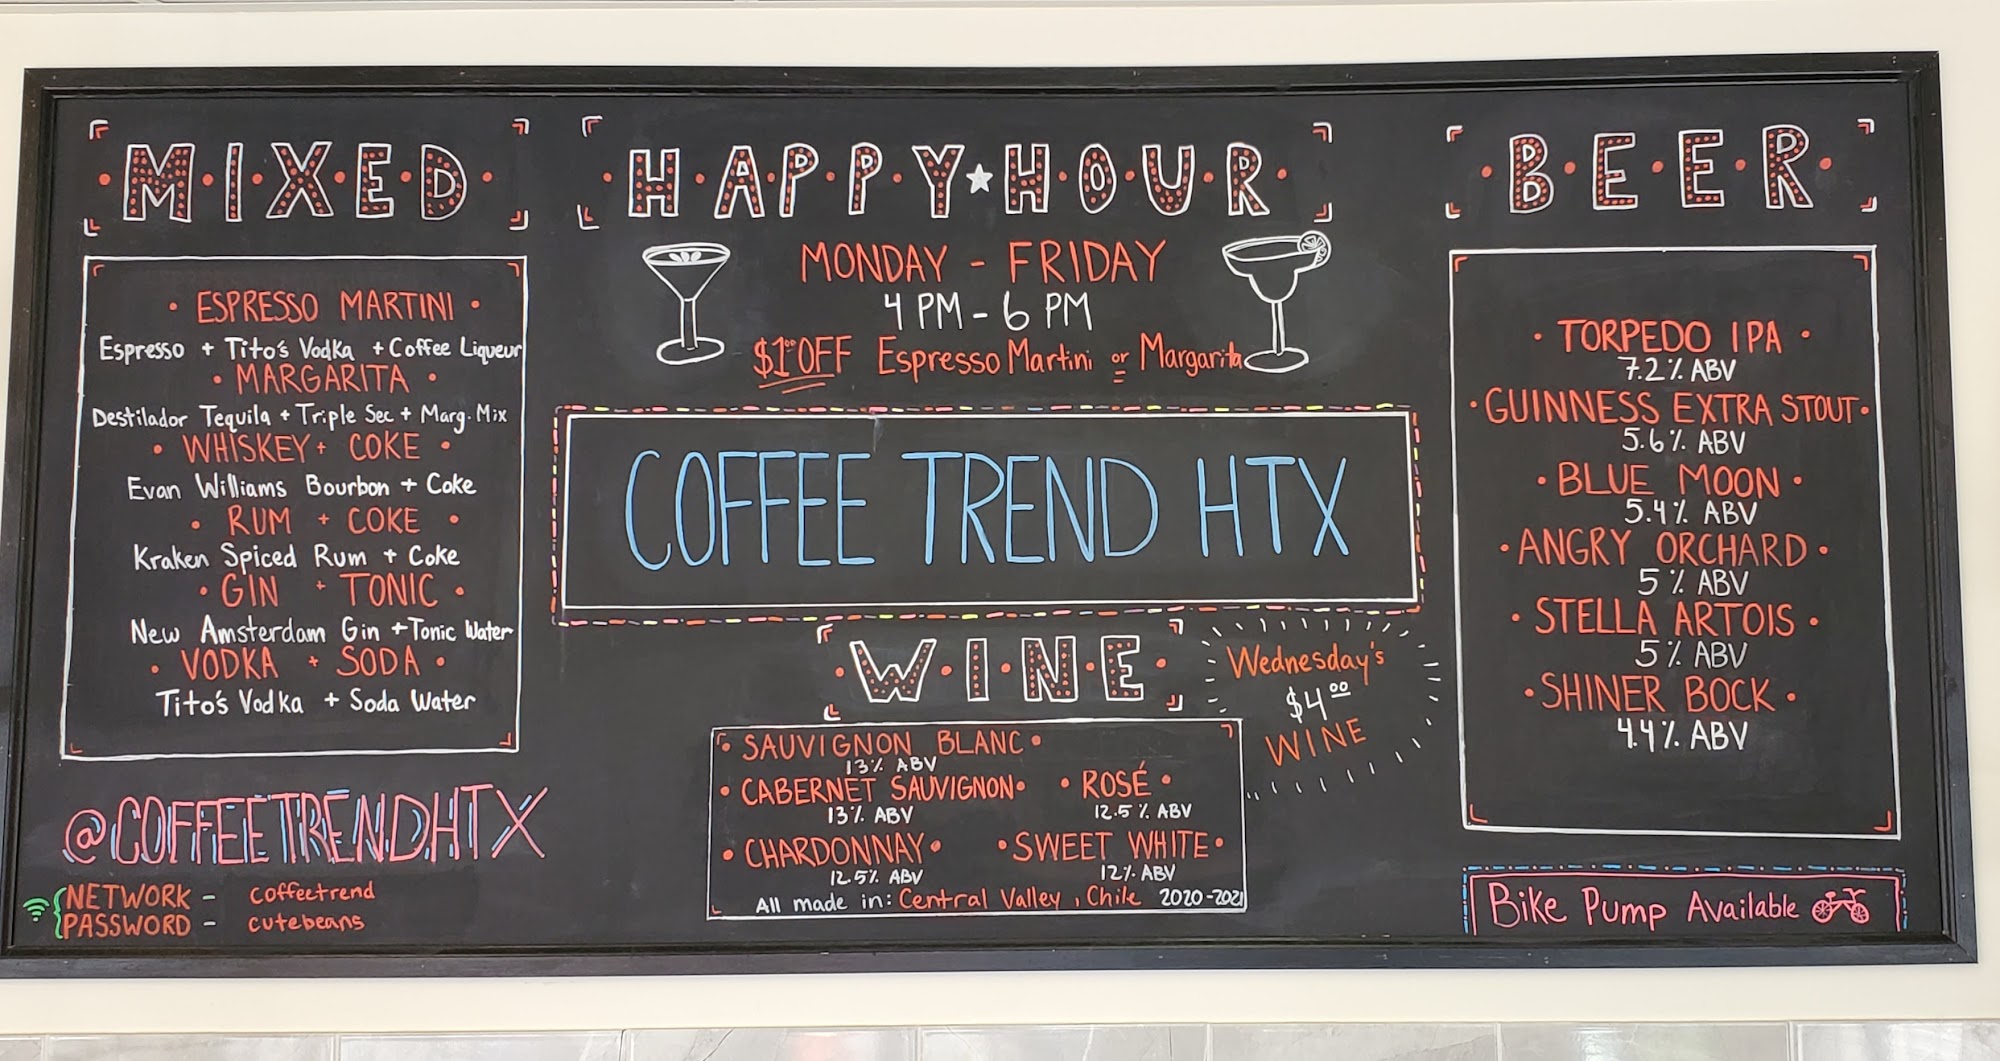 MIXED
• ESPRESSO MARTINI •
Espresso + Tito's Vodka + Coffee Liqueur
• MARGARITA •
Destilador Tequila + Triple Sec + Marg. Mix
• WHISKEY + COKE •
Evan Williams Bourbon + Coke
• RUM + COKE •
Kraken Spiced Rum + Coke
• GIN + TONIC •
New Amsterdam Gin + Tonic Water
• VODKA + SODA •
Tito's Vodka + Soda Water
@COFFEETRENDHTX
NETWORK - coffeetrend
PASSWORD - cutebeans
HAPPY HOUR
MONDAY - FRIDAY
4 PM - 6 PM
$1.00 OFF Espresso Martini or Margarita
COFFEE TREND HTX
WINE
• SAUVIGNON BLANC •
13% ABV
• CABERNET SAUVIGNON •
13% ABV
• ROSÉ •
12.5% ABV
• CHARDONNAY •
12.5% ABV
• SWEET WHITE •
12% ABV
All made in: Central Valley, Chile 2020-2021
Wednesday's
$4.00
WINE
BEER
• TORPEDO IPA •
7.2% ABV
• GUINNESS EXTRA STOUT •
5.6% ABV
• BLUE MOON •
5.4% ABV
• ANGRY ORCHARD •
5% ABV
• STELLA ARTOIS •
5% ABV
• SHINER BOCK •
4.4% ABV
Bike Pump Available